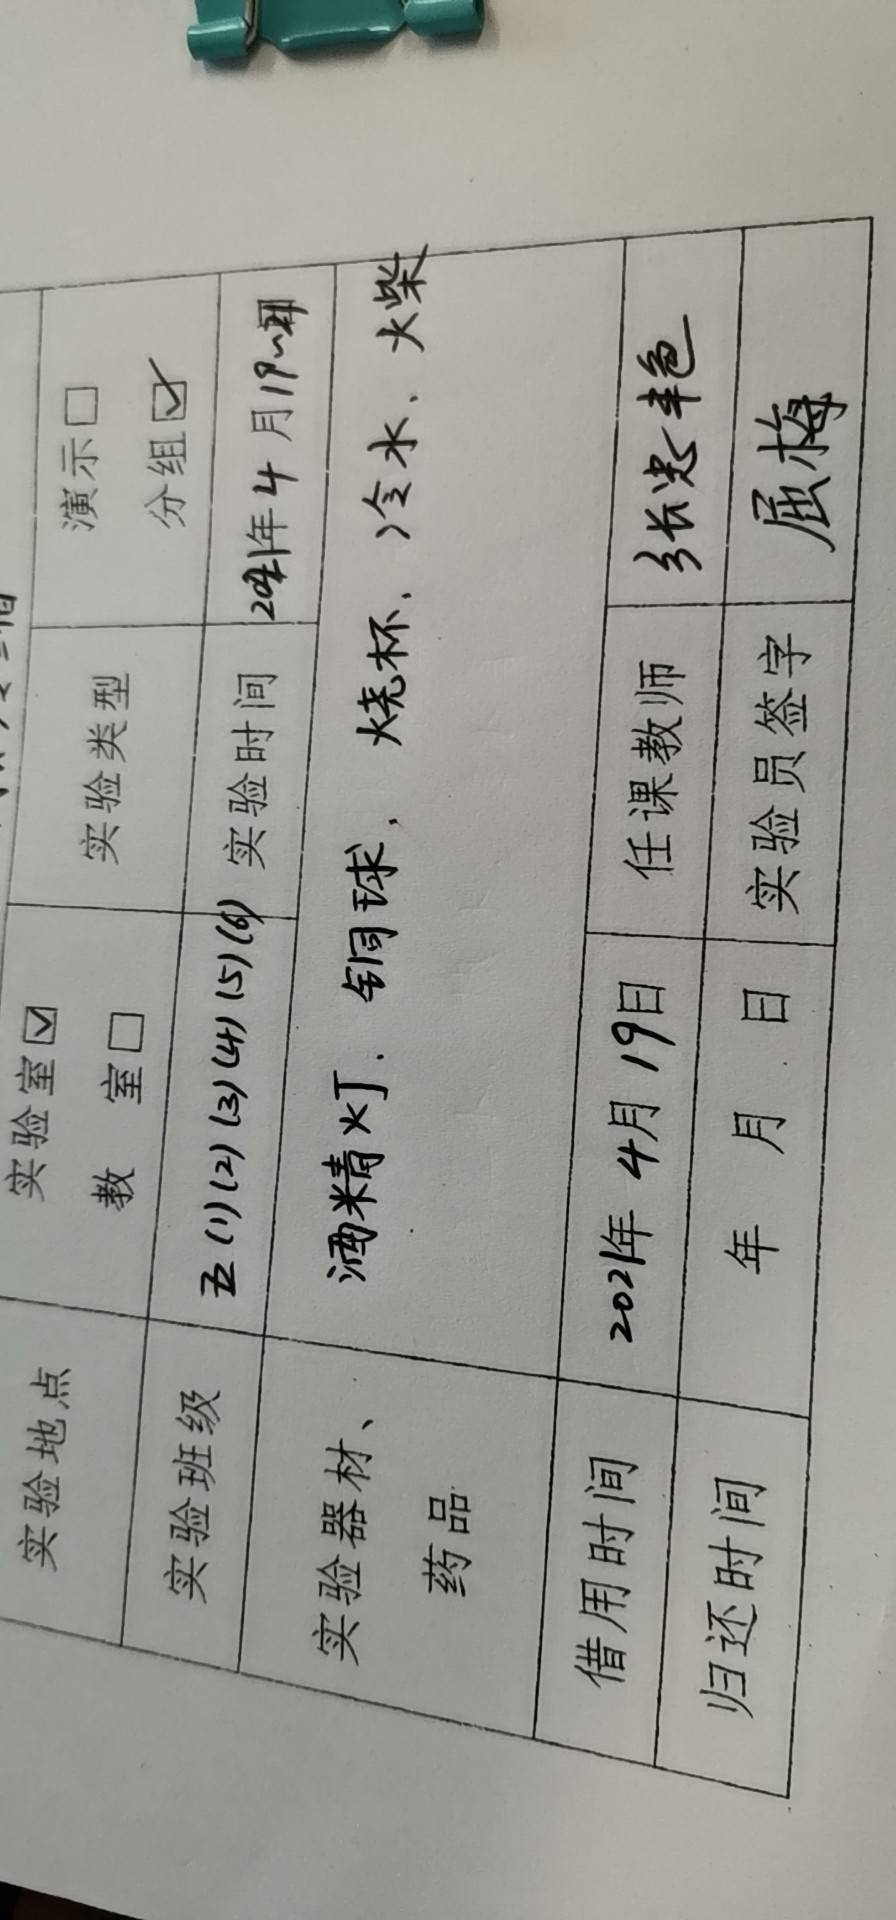 实验地点 实验室☑ 实验类型 演示□
教 室□ 分组☑
实验班级 五(1)(2)(3)(4)(5)(6) 实验时间 2021年4月19~
实验器材、 酒精灯、铜球，烧杯、冷水、火柴
药品
借用时间 2021年4月19日 任课教师 张忠
归还时间 年 月 日 实验员签字 屈梅